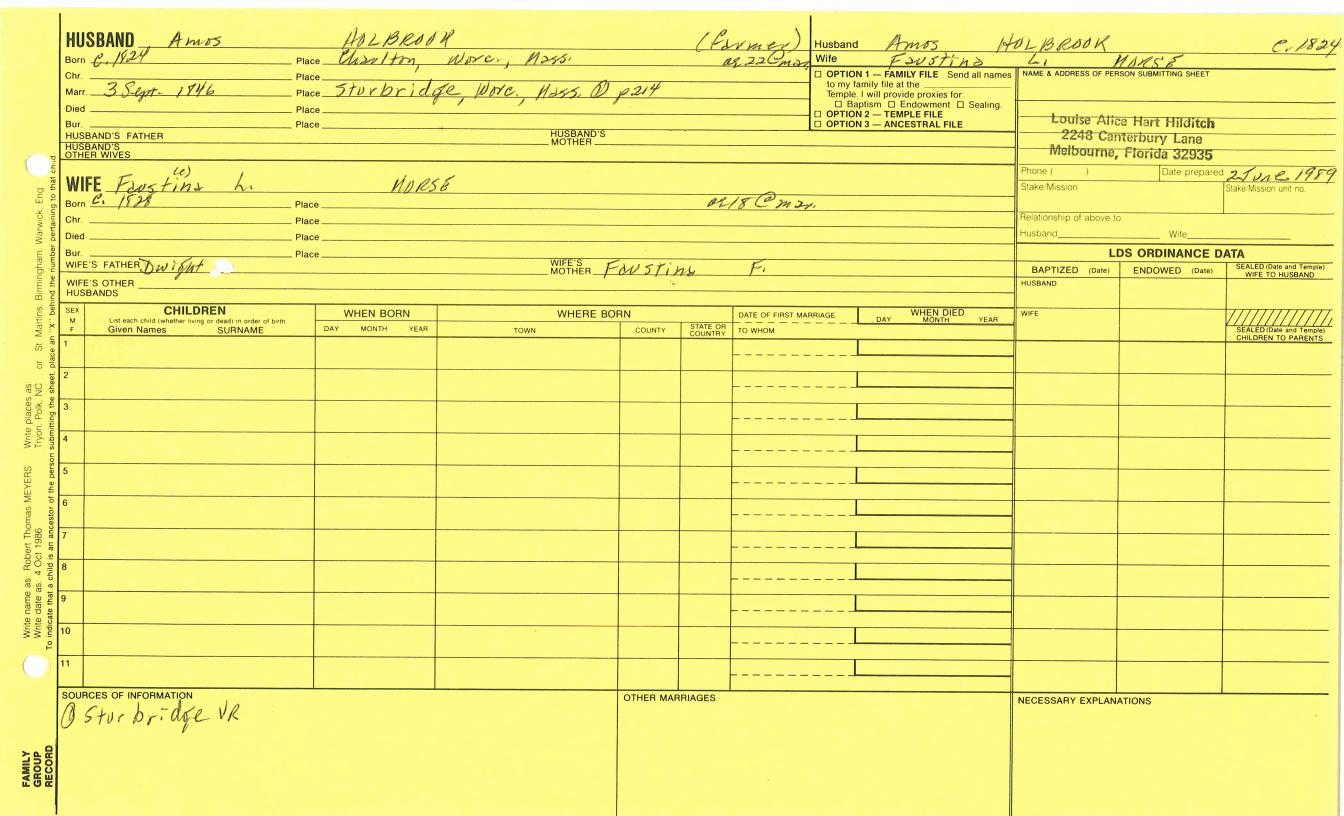 HUSBAND Amos HOLBROOK (Farmer)
Born c. 1824 Place Charlton, Worc., Mass. ae 22 @ mar.
Chr. Place
Marr. 3 Sept. 1846 Place Sturbridge, Worc., Mass. ① p214
Died Place
Bur. Place
HUSBAND'S FATHER HUSBAND'S MOTHER
HUSBAND'S OTHER WIVES
WIFE Faustina (e) L. MORSE
Born c. 1828 Place ae 18 @ mar.
Chr. Place
Died Place
Bur. Place
WIFE'S FATHER Dwight WIFE'S MOTHER Faustina F.
WIFE'S OTHER HUSBANDS
Husband Amos HOLBROOK c. 1824
Wife Faustina L. MORSE
☐ OPTION 1 — FAMILY FILE Send all names
to my family file at the
Temple. I will provide proxies for
☐ Baptism ☐ Endowment ☐ Sealing.
☐ OPTION 2 — TEMPLE FILE
☐ OPTION 3 — ANCESTRAL FILE
NAME & ADDRESS OF PERSON SUBMITTING SHEET
Louise Alice Hart Hilditch
2248 Canterbury Lane
Melbourne, Florida 32935
Phone ( ) Date prepared 2 June 1989
Stake/Mission Stake/Mission unit no.
Relationship of above to
Husband Wife
LDS ORDINANCE DATA
BAPTIZED (Date) ENDOWED (Date) SEALED (Date and Temple) WIFE TO HUSBAND
HUSBAND
WIFE
SEALED (Date and Temple) CHILDREN TO PARENTS
SEX M F
CHILDREN
List each child (whether living or dead) in order of birth
Given Names SURNAME
WHEN BORN
DAY MONTH YEAR
WHERE BORN
TOWN COUNTY STATE OR COUNTRY
DATE OF FIRST MARRIAGE
TO WHOM
WHEN DIED
DAY MONTH YEAR
1
2
3
4
5
6
7
8
9
10
11
SOURCES OF INFORMATION
① Sturbridge VR
OTHER MARRIAGES
NECESSARY EXPLANATIONS
Write name as: Robert Thomas MEYERS Write places as Tryon, Polk, NC or St. Martins, Birmingham, Warwick, Eng
Write date as: 4 Oct 1986
To indicate that a child is an ancestor of the person submitting the sheet, place an "X" behind the number pertaining to that child.
FAMILY GROUP RECORD